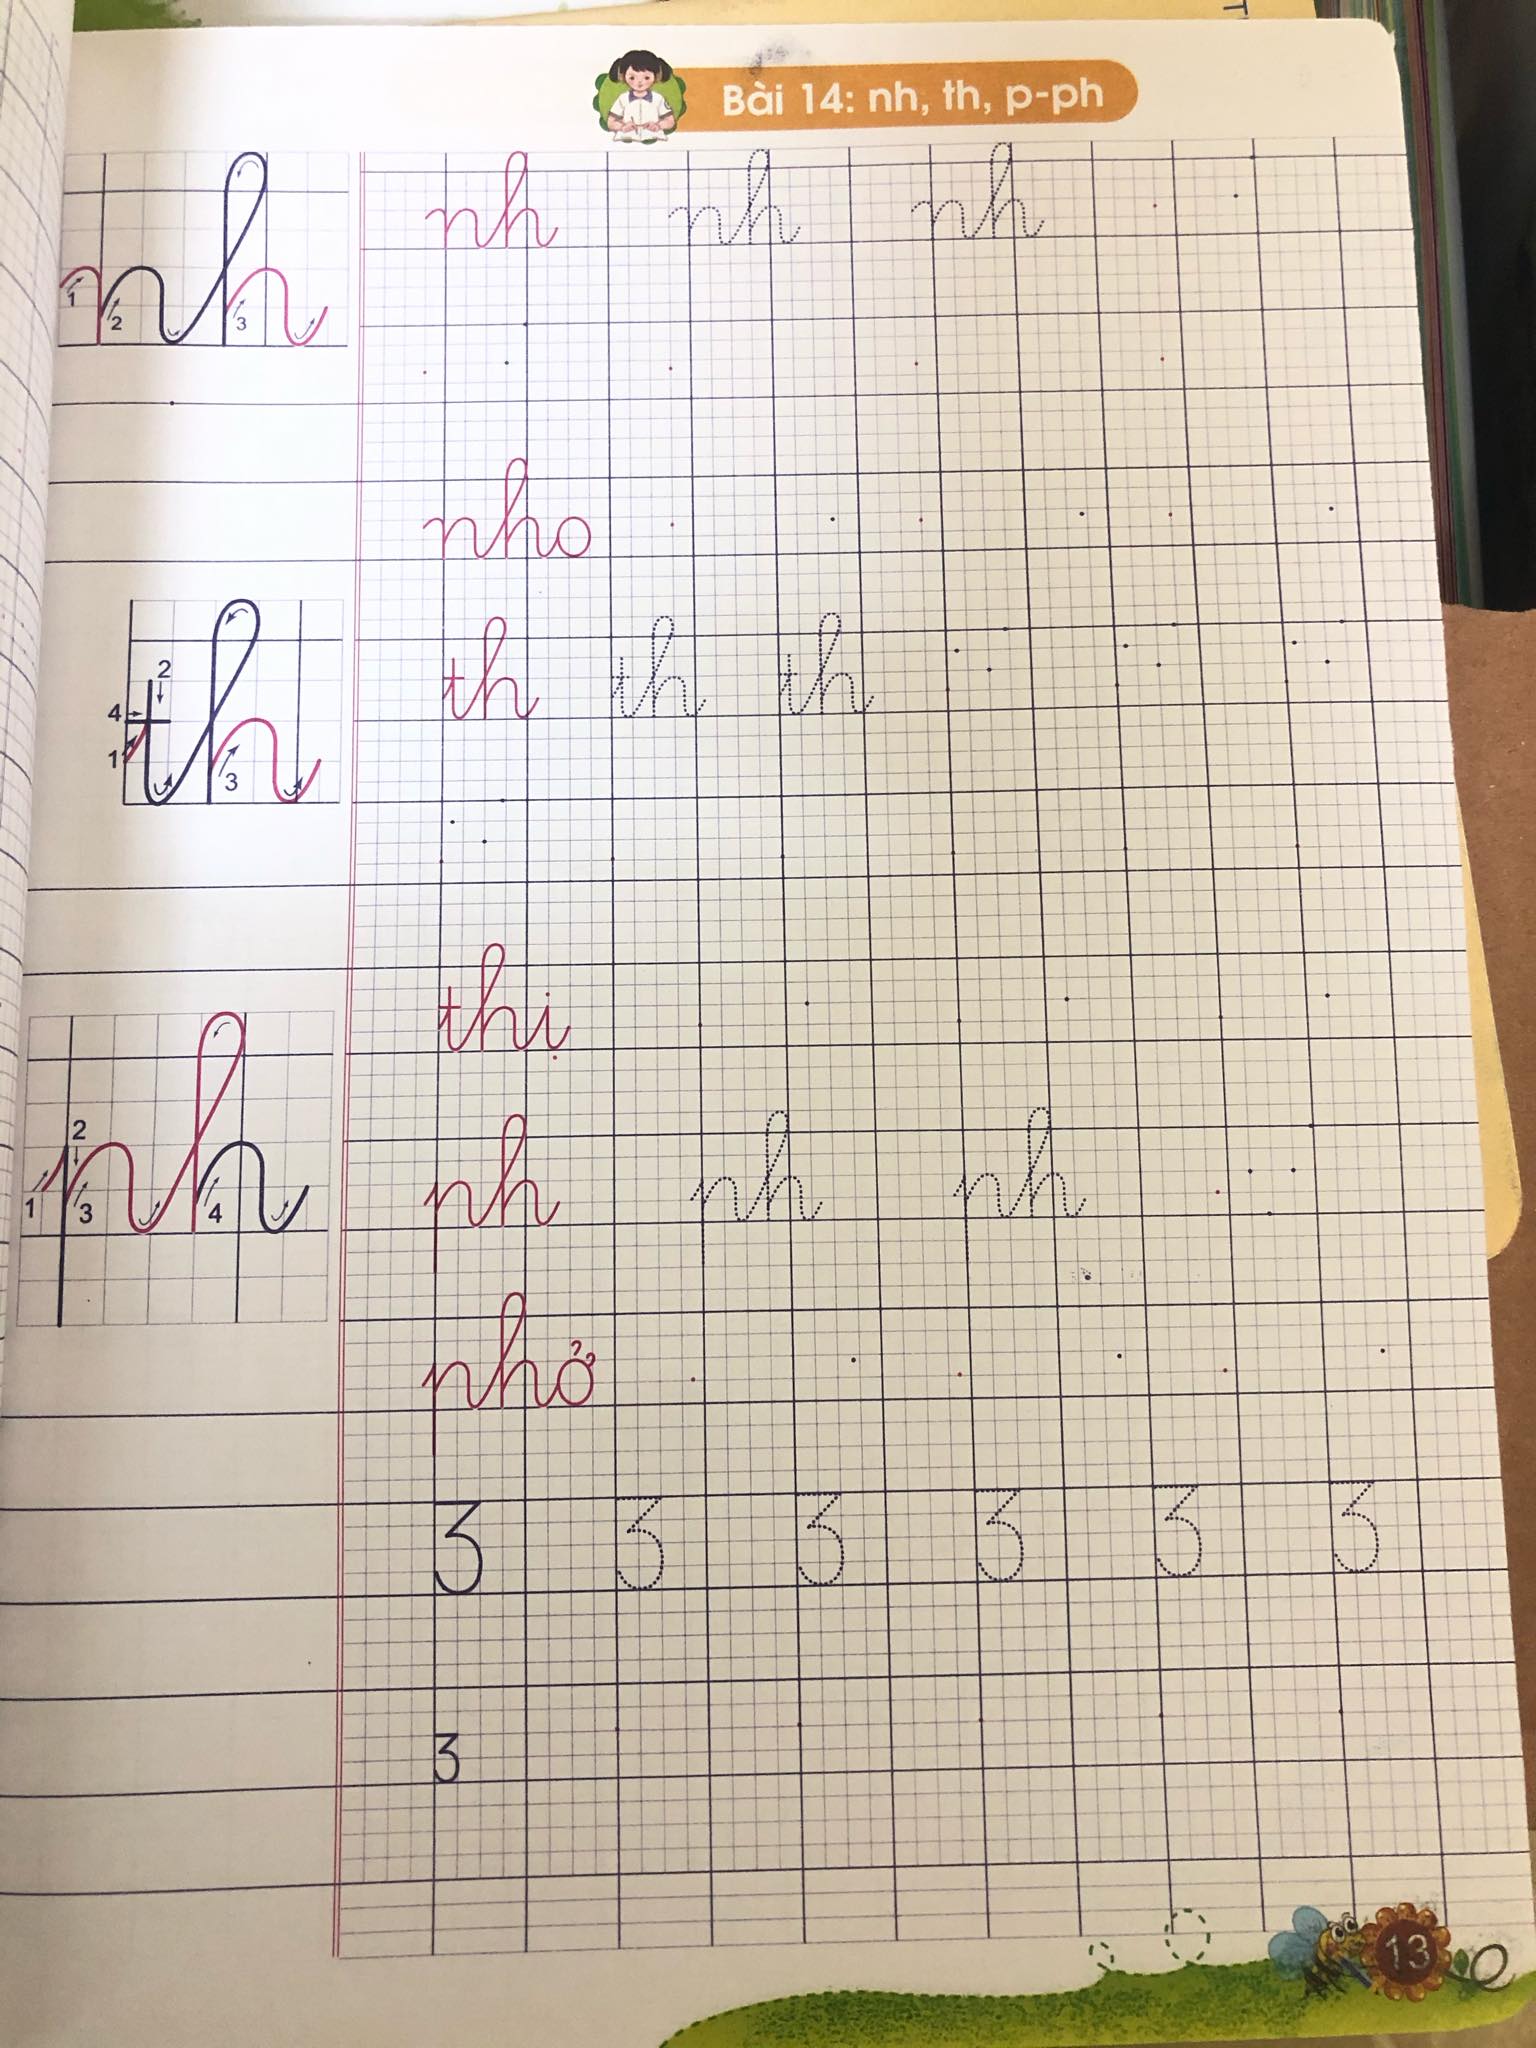 Bài 14: nh, th, p-ph
1 2 3
nh nh nh
nho
4 2 1 3
th th th
thị
1 2 3 4
ph ph ph
phở
3 3 3 3 3 3
3
13